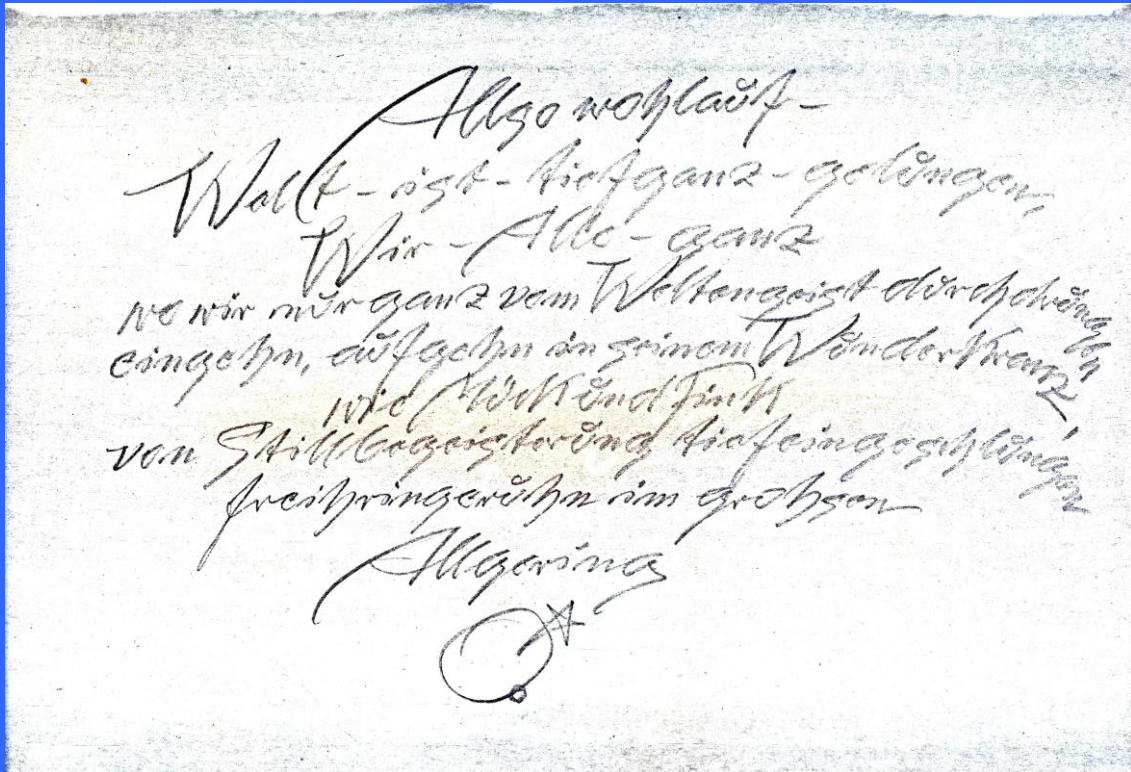 Allso wohlauf -
Wellt - ist - tiefganz - gelungen,
Wir - Alle - ganz
wo wir nur ganz vom Weltengeist durchdrungen
eingehn, aufgehn in seinem Wunderkranz,
wie Mück und Fink
von Stillbegeisterung tiefeingeschlungen
freihringeruhn im grohsen
Allgering